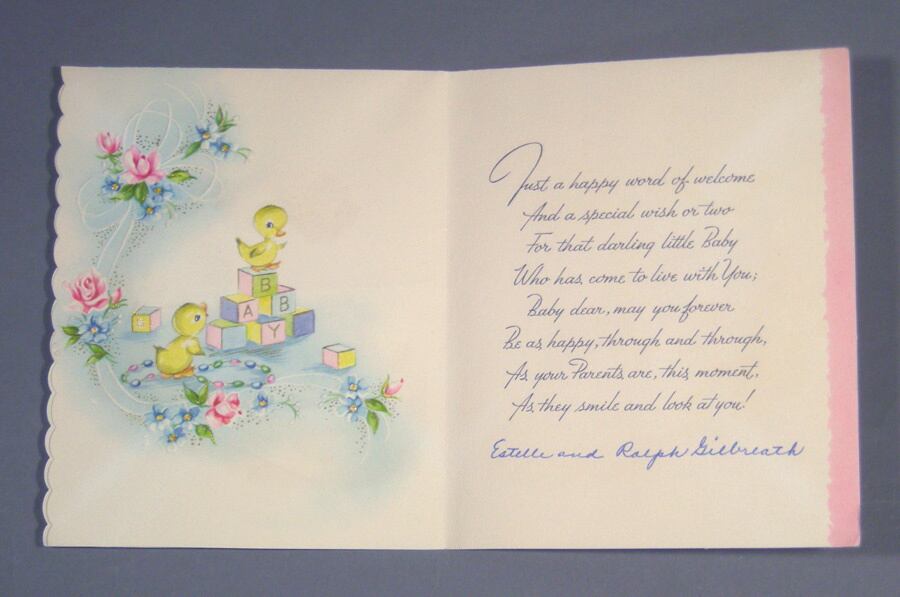 B
A B
Y
Just a happy word of welcome
And a special wish or two
For that darling little Baby
Who has come to live with You;
Baby dear, may you forever
Be as happy, through and through,
As your Parents are, this moment,
As they smile and look at you!
Estelle and Ralph Gilbreath